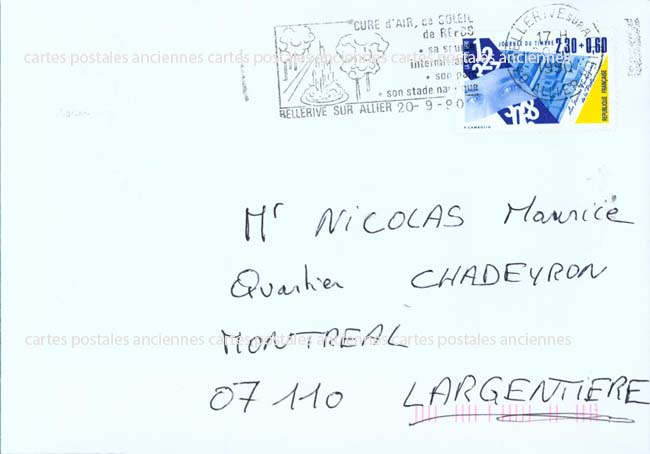 CURE d'AIR, de SOLEIL
de REPOS
• sa sour
• son
• son stade nautique
BELLERIVE SUR ALLIER 20-9-90
JOURNÉE DU TIMBRE 2,30+0,60
RÉPUBLIQUE FRANÇAISE
17 H
1990
ALLIER
cartes postales anciennes cartes postales anciennes cartes postales anciennes
Mr NICOLAS Maurice
Quartier CHADEYRON
MONTREAL
cartes postales anciennes cartes postales anciennes
07 110 LARGENTIERE